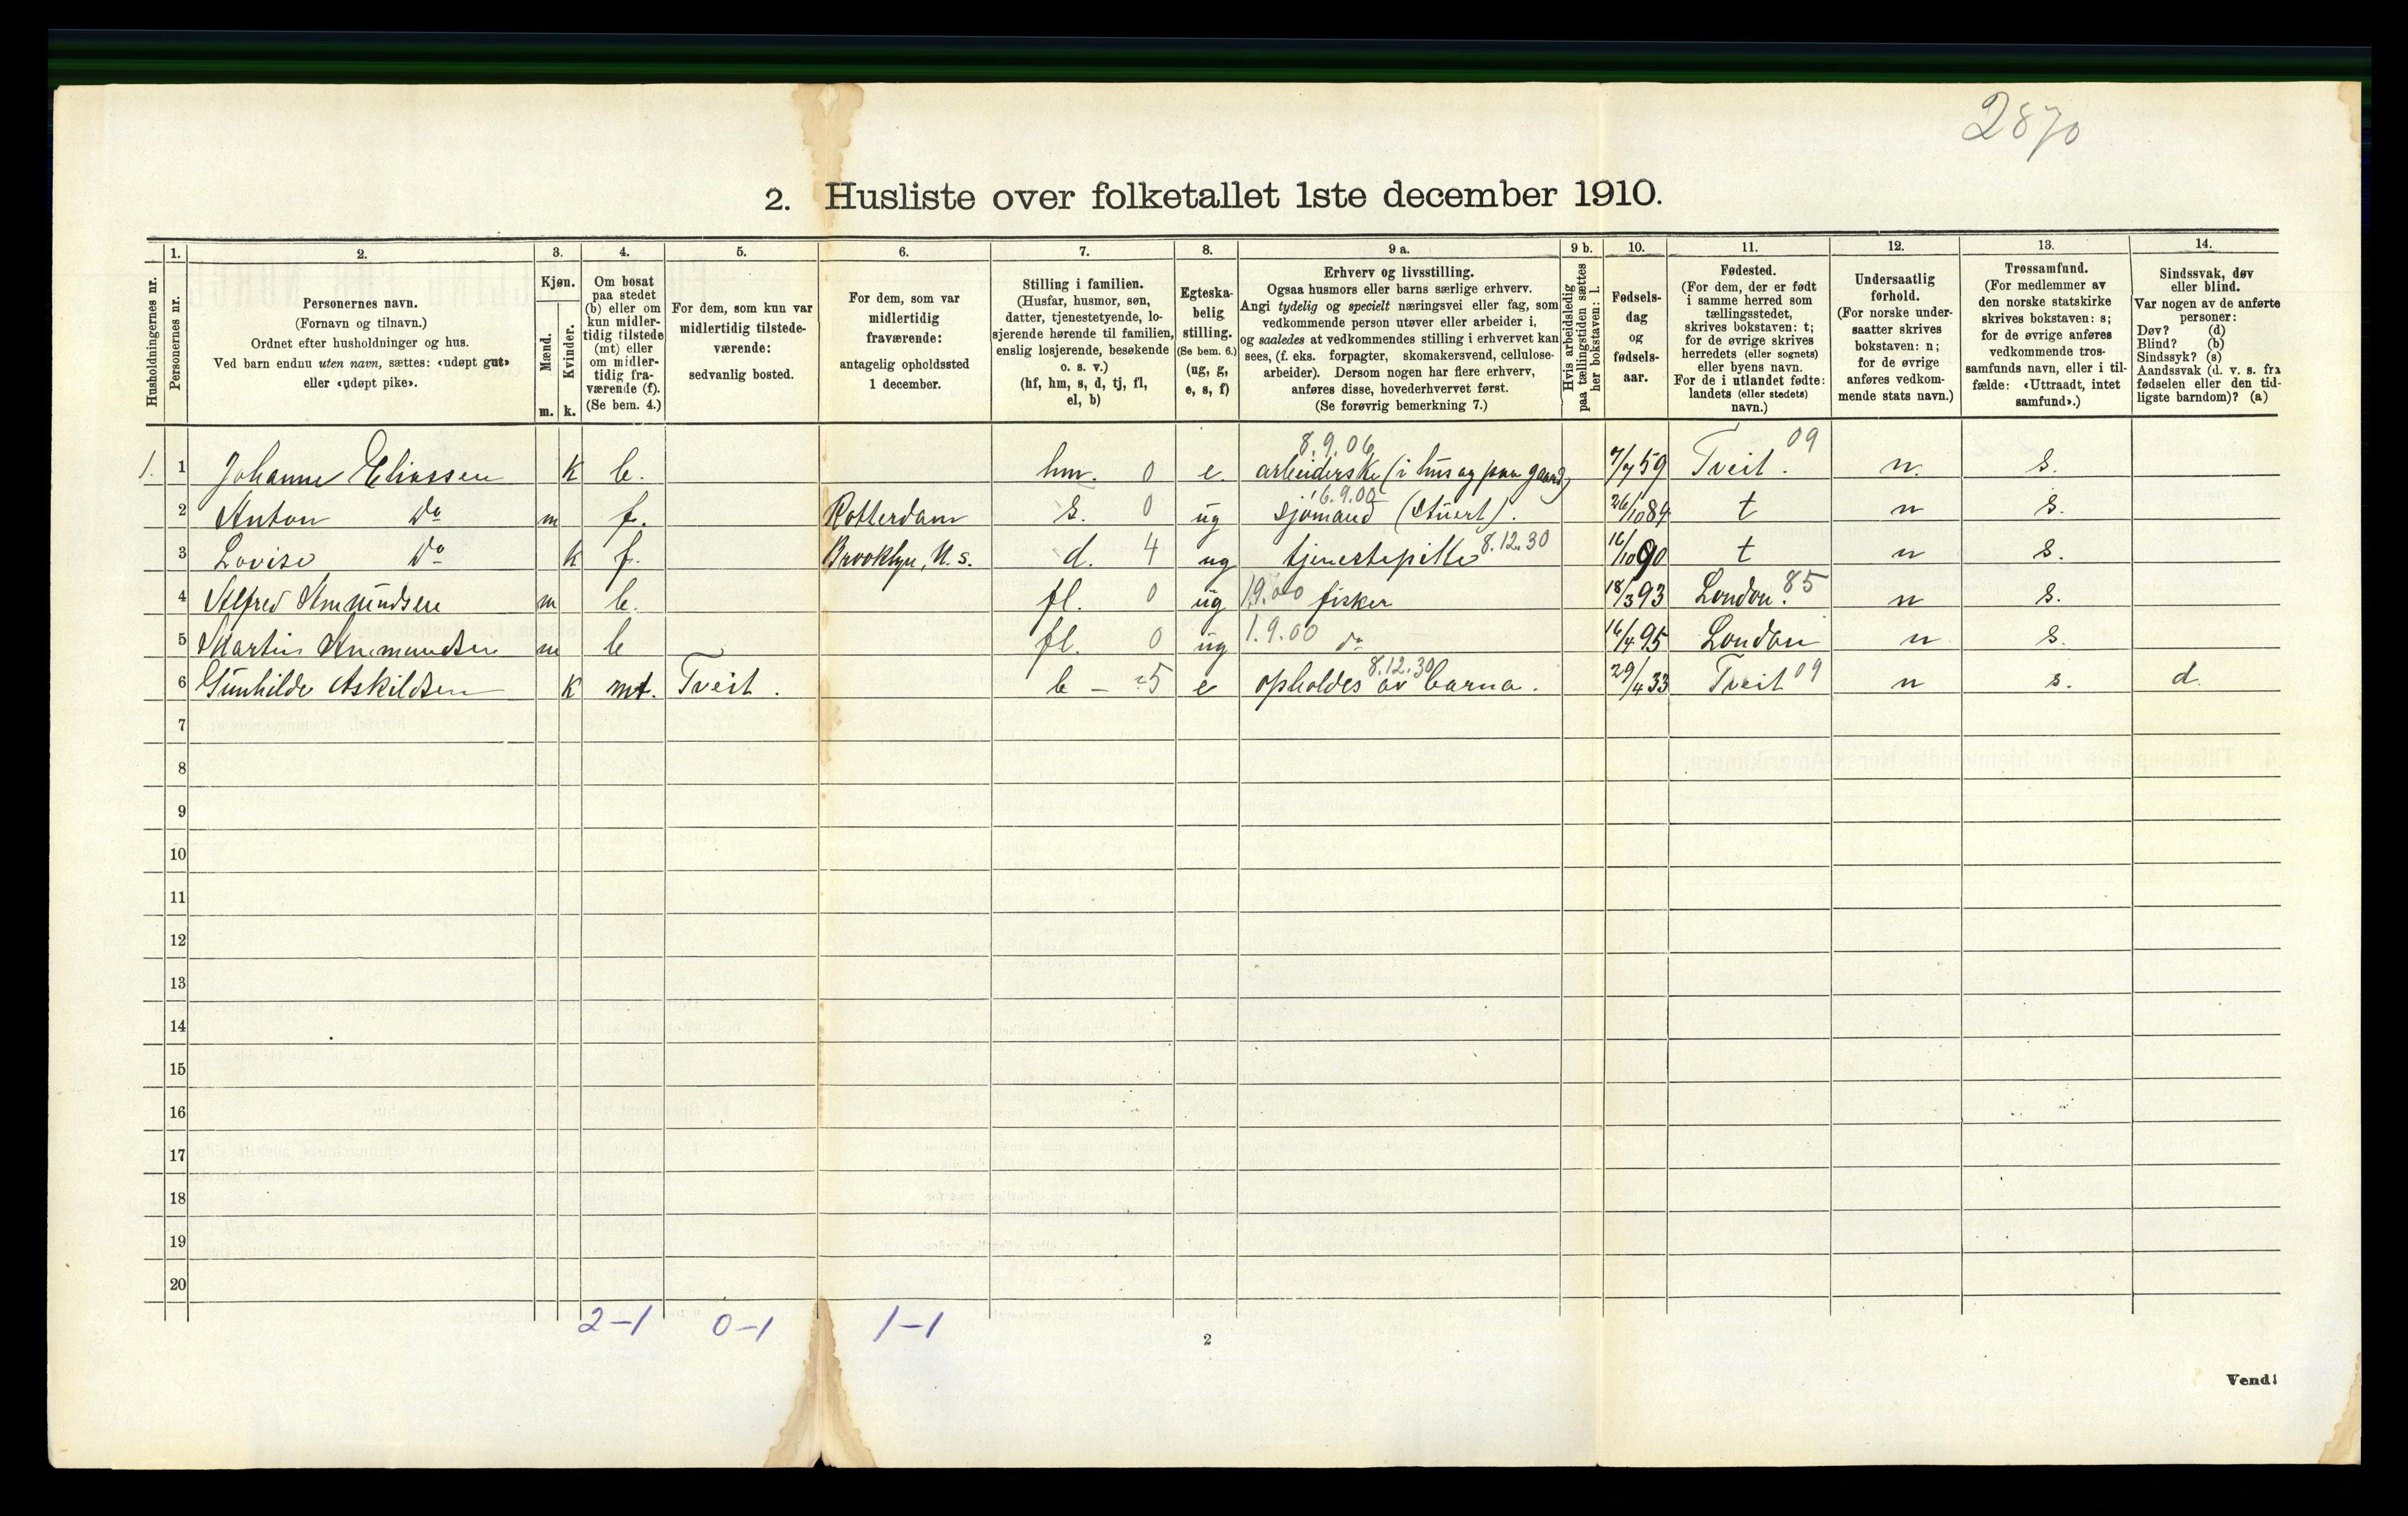 2870
2. Husliste over folketallet 1ste december 1910.
Husholdningernes nr.
1.
Personernes nr.
2.
Personernes navn.
(Fornavn og tilnavn.)
Ordnet efter husholdninger og hus.
Ved barn endnu uten navn, sættes: «udøpt gut»
eller «udøpt pike».
3.
Kjøn.
Mænd.
m.
Kvinder.
k.
4.
Om bosat
paa stedet
(b) eller om
kun midler-
tidig tilstede
(mt) eller
om midler-
tidig fra-
værende (f).
(Se bem. 4.)
5.
For dem, som kun var
midlertidig tilstede-
værende:
sedvanlig bosted.
6.
For dem, som var
midlertidig
fraværende:
antagelig opholdssted
1 december.
7.
Stilling i familien.
(Husfar, husmor, søn,
datter, tjenestetyende, lo-
sjerende hørende til familien,
enslig losjerende, besøkende
o. s. v.)
(hf, hm, s, d, tj, fl,
el, b)
8.
Egteska-
belig
stilling.
(Se bem. 6.)
(ug, g,
e, s, f)
9 a.
Erhverv og livsstilling.
Ogsaa husmors eller barns særlige erhverv.
Angi tydelig og specielt næringsvei eller fag, som
vedkommende person utøver eller arbeider i,
og saaledes at vedkommendes stilling i erhvervet kan
sees, (f. eks. forpagter, skomakersvend, cellulose-
arbeider). Dersom nogen har flere erhverv,
anføres disse, hovederhvervet først.
(Se forøvrig bemerkning 7.)
9 b.
Hvis arbeidsledig
paa tællingstiden sættes
her bokstaven: l.
10.
Fødsels-
dag
og
fødsels-
aar.
11.
Fødested.
(For dem, der er født
i samme herred som
tællingsstedet,
skrives bokstaven: t;
for de øvrige skrives
herredets (eller sognets)
eller byens navn.
For de i utlandet fødte:
landets (eller stedets)
navn.)
12.
Undersaatlig
forhold.
(For norske under-
saatter skrives
bokstaven: n;
for de øvrige
anføres vedkom-
mende stats navn.)
13.
Trossamfund.
(For medlemmer av
den norske statskirke
skrives bokstaven: s;
for de øvrige anføres
vedkommende tros-
samfunds navn, eller i til-
fælde: «Uttraadt, intet
samfund».)
14.
Sindssvak, døv
eller blind.
Var nogen av de anførte
personer:
Døv? (d)
Blind? (b)
Sindssyk? (s)
Aandssvak (d. v. s. fra
fødselen eller den tid-
ligste barndom)? (a)
8.9.06 09
1. 1 Johanne Eliassen k b. hm. 0 e. arbeiderske (i hus og paa gaard) 7/7 59 Tveit. n. s.
6.9.00
2 Anton do m f. Rotterdam s. 0 ug sjømand (Stuert). 26/10 84 t n s.
3 Lovise do k f. Brooklyn, U.s. d. 4 ug tjenestepike 8.12.30 16/10 90 t n s.
4 Alfred Amundsen m b. fl. 0 ug 1.9.00 fisker 18/3 93 London. 85 n s.
5 Martin Ammundsen m b fl. 0 ug 1.9.00 do 16/4 95 London n s.
8.12.30
6 Gunhilde Askildsen k mt. Tveit. b - 5 e opholdes av barna. 29/4 33 Tveit 09 n s. d.
7
8
9
10
11
12
13
14
15
16
17
18
19
20
2-1 0-1 1-1
2
Vend!